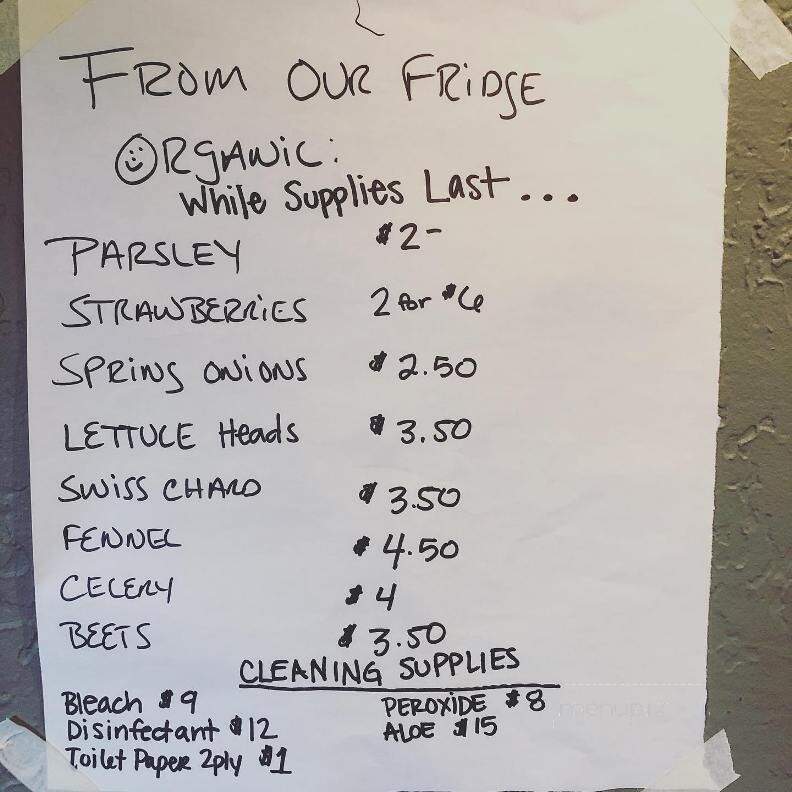 FROM OUR FRIDGE
ORGANIC:
While Supplies Last...
PARSLEY $2-
STRAWBERRIES 2 for $6
SPRING ONIONS $2.50
LETTUCE Heads $3.50
SWISS CHARD $3.50
FENNEL $4.50
CELERY $4
BEETS $3.50
CLEANING SUPPLIES
Bleach $9 PEROXIDE $8
Disinfectant $12 ALOE $15
Toilet Paper 2ply $1
menupix